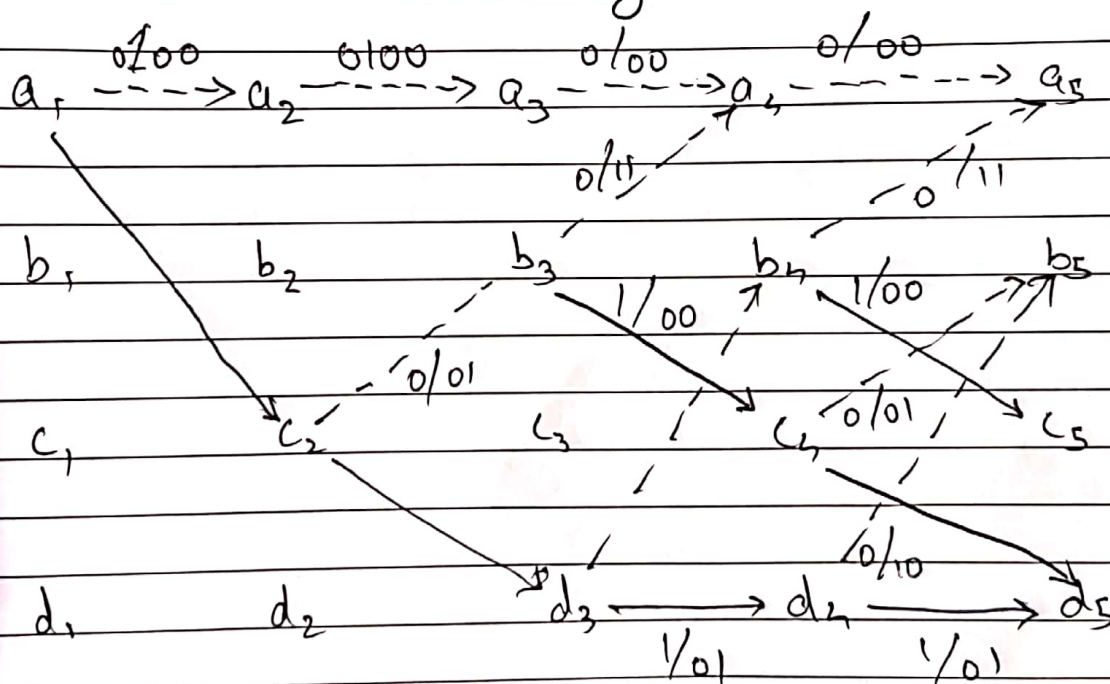 0/00 0/00 0/00 0/00
a1 a2 a3 a4 a5
0/11 0/11
b1 b2 b3 b4 b5
1/00 1/00
0/01 0/01
c1 c2 c3 c4 c5
0/10
d1 d2 d3 d4 d5
1/01 1/01